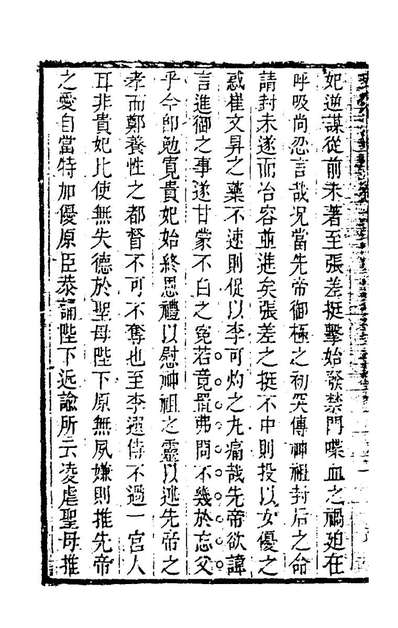 妃逆謀從前未著至張差挺擊始發禁門喋血之禍廹在
呼吸尚忍言哉况當先帝御極之初突傳神祖封后之命
請封未遂而冶容並進矣張差之挺不中則投以女優之
惑崔文昇之藥不速則促以李可灼之丸痛哉先帝欲諱
言進御之事遂甘蒙不白之寃若竟置弗問不幾於忘父
乎今即勉寬貴妃始終恩禮以慰神祖之靈以述先帝之
孝而鄭養性之都督不可不奪也至李選侍不過一宮人
耳非貴妃比使無失德於聖母陛下原無夙嫌則推先帝
之愛自當特加優原臣恭誦陛下近諭所云凌虐聖母推